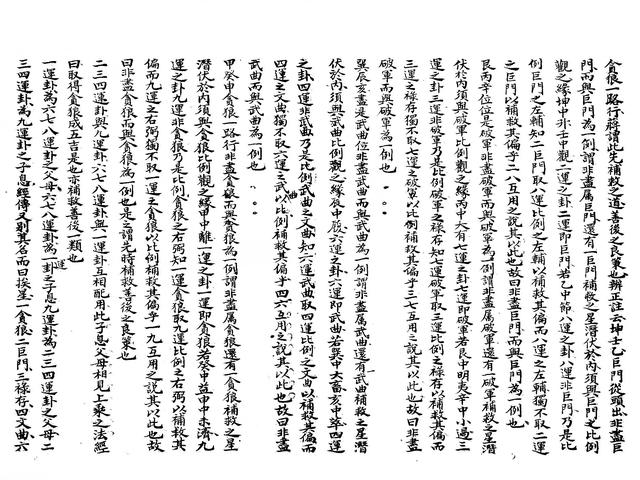 貪狼一路行辭謂此先補救之道善後之良策也辨正註云坤壬乙巨門從頭出非盡巨
門而與巨門為一例謂非盡屬巨門還有一巨門補救之星潛伏於內須與巨門之比例
觀之緣坤中升壬中觀二運之卦二運即巨門若乙中節八運之卦八運非巨門乃是比
例巨門之左輔知二巨門取八運比例之左輔以補救其偏而八運之左輔獨不取二運
之巨門以補救其偏乎二八互用之說其以此也故曰非盡巨門而與巨門為一例也
艮丙辛位位是破軍非盡破軍而與破軍為一例謂非盡屬破軍還有一破軍補救之星潛
伏於內須與破軍比例觀之緣丙中大有七運之卦七運即破軍若艮中明夷辛中小過三
運之卦三運非破軍乃是比例破軍之祿存知七運破軍取三運比例之祿存以補救其偏而
三運之祿存獨不取七運之破軍以比例補救其偏乎三七互用之說其以此也故曰非盡
破軍而與破軍為一例也
巽辰亥盡是武曲位非盡武曲而與武曲為一例謂非盡屬武曲還有一武曲補救之星潛
伏於內須與武曲比例觀之緣辰中履六運之卦六運即武曲若巽中大畜亥中萃四運
之卦四運非武曲乃是比例武曲之文曲知六運武曲取四運比例之文曲以補救其偏而
四運之文曲獨不取六運之武曲以比例補救其偏乎四六互用之說其以此也故曰非盡
武曲而與武曲為一例也
甲癸申貪狼一路行非盡貪狼而與貪狼為一例謂非盡屬貪狼還有一貪狼補救之星
潛伏於內須與貪狼比例觀之緣甲中離一運之卦一運即貪狼若癸中益申中未濟九
運之卦九運非貪狼乃是比例貪狼之右弼知一運貪狼取九運比例之右弼以補救其
偏而九運之右弼獨不取一運之貪狼以比例補救其偏乎一九互用之說其以此也故
曰非盡貪狼而與貪狼為一例也是之謂先時補救善後之良策也
二三四運卦與九運卦六七八運卦與一運卦互相配用此子息父母相見上乘之法經
曰取得貪狼成五吉是也亦補救善後一類也
一運卦為六七八運卦之父母六七八運卦為一運卦之子息九運卦為二三四運卦之父母二
三四運卦為九運卦之子息經傳又別其名而曰挨星一貪狼二巨門三祿存四文曲六